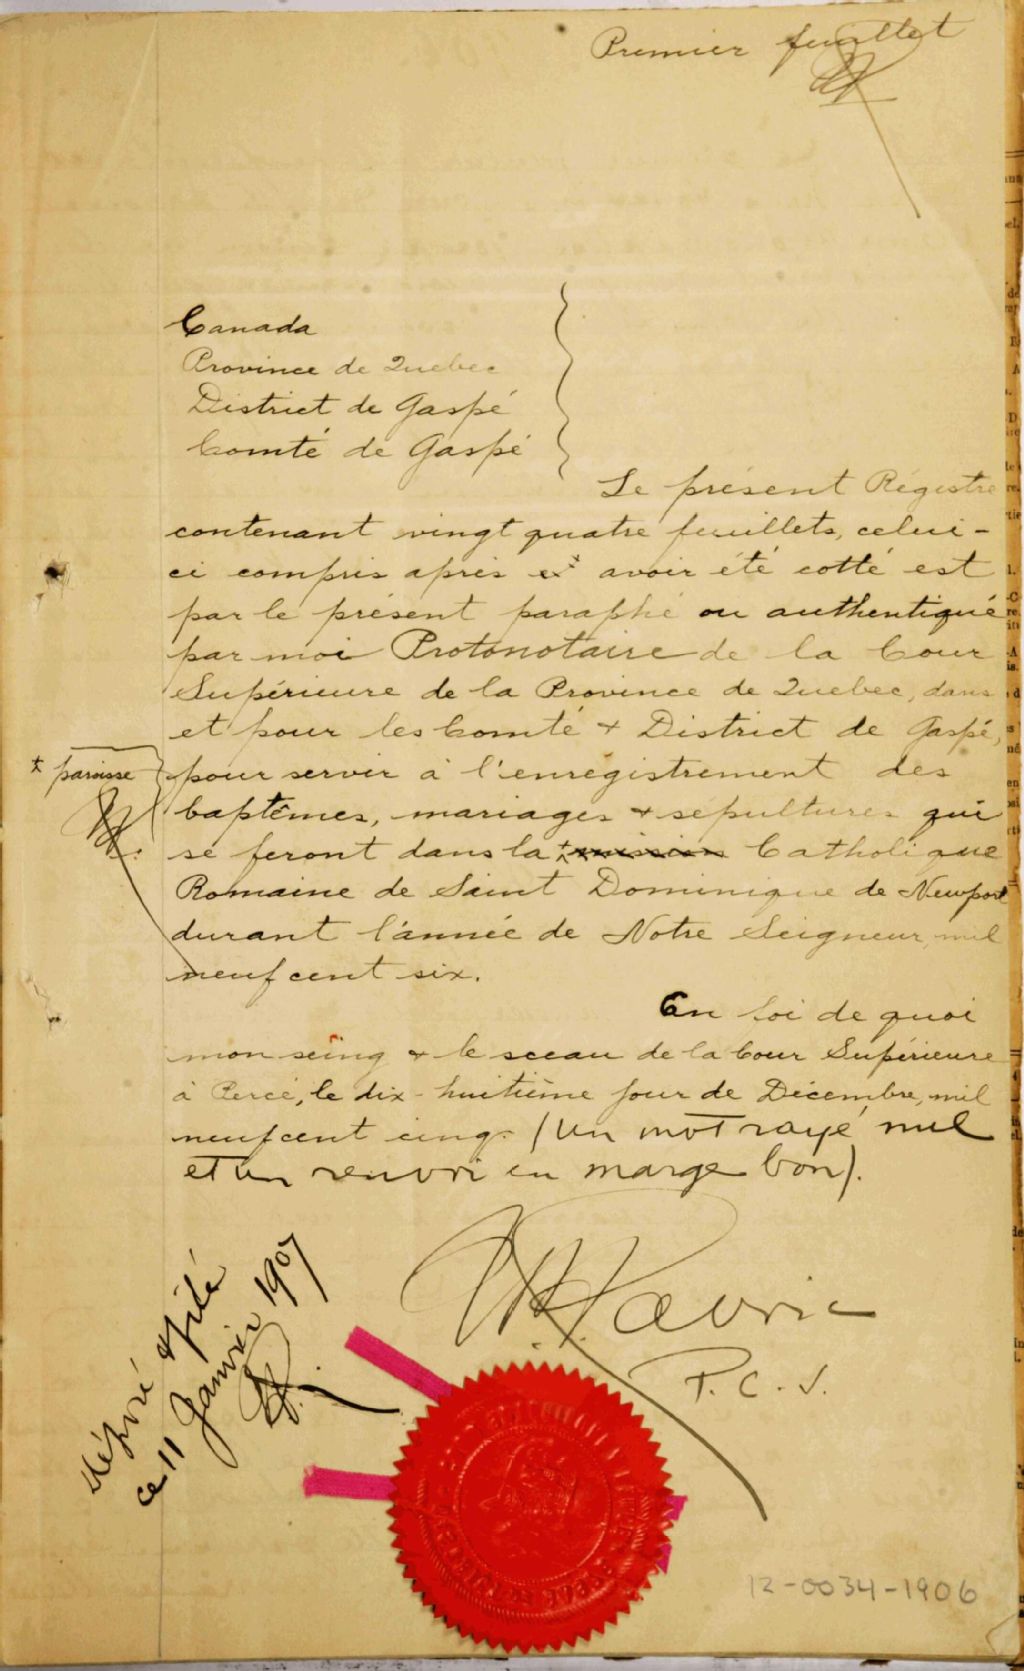 Premier feuillet
Canada
Province de Quebec
District de Gaspé
Comté de Gaspé
Le présent Régistre
contenant vingt quatre feuillets, celui-
ci compris après avoir été cotté est
par le présent paraphé ou authentiqué
par moi Protonotaire de la Cour
Supérieure de la Province de Quebec, dans
et pour les Comté & District de Gaspé,
pour servir à l'enregistrement des
baptêmes, mariages & sépultures qui
se feront dans la ‡ mission Catholique
‡ paroisse
Romaine de Saint Dominique de Newport
durant l'année de Notre Seigneur, mil
neuf cent six.
En foi de quoi
mon seing & le sceau de la Cour Supérieure
à Percé, le dix-huitième jour de Décembre, mil
neuf cent cinq. (Un mot rayé nul
et un renvoi en marge bon).
P. C. S.
déposé & filé
ce 11 Janvier 1907
12-0034-1906